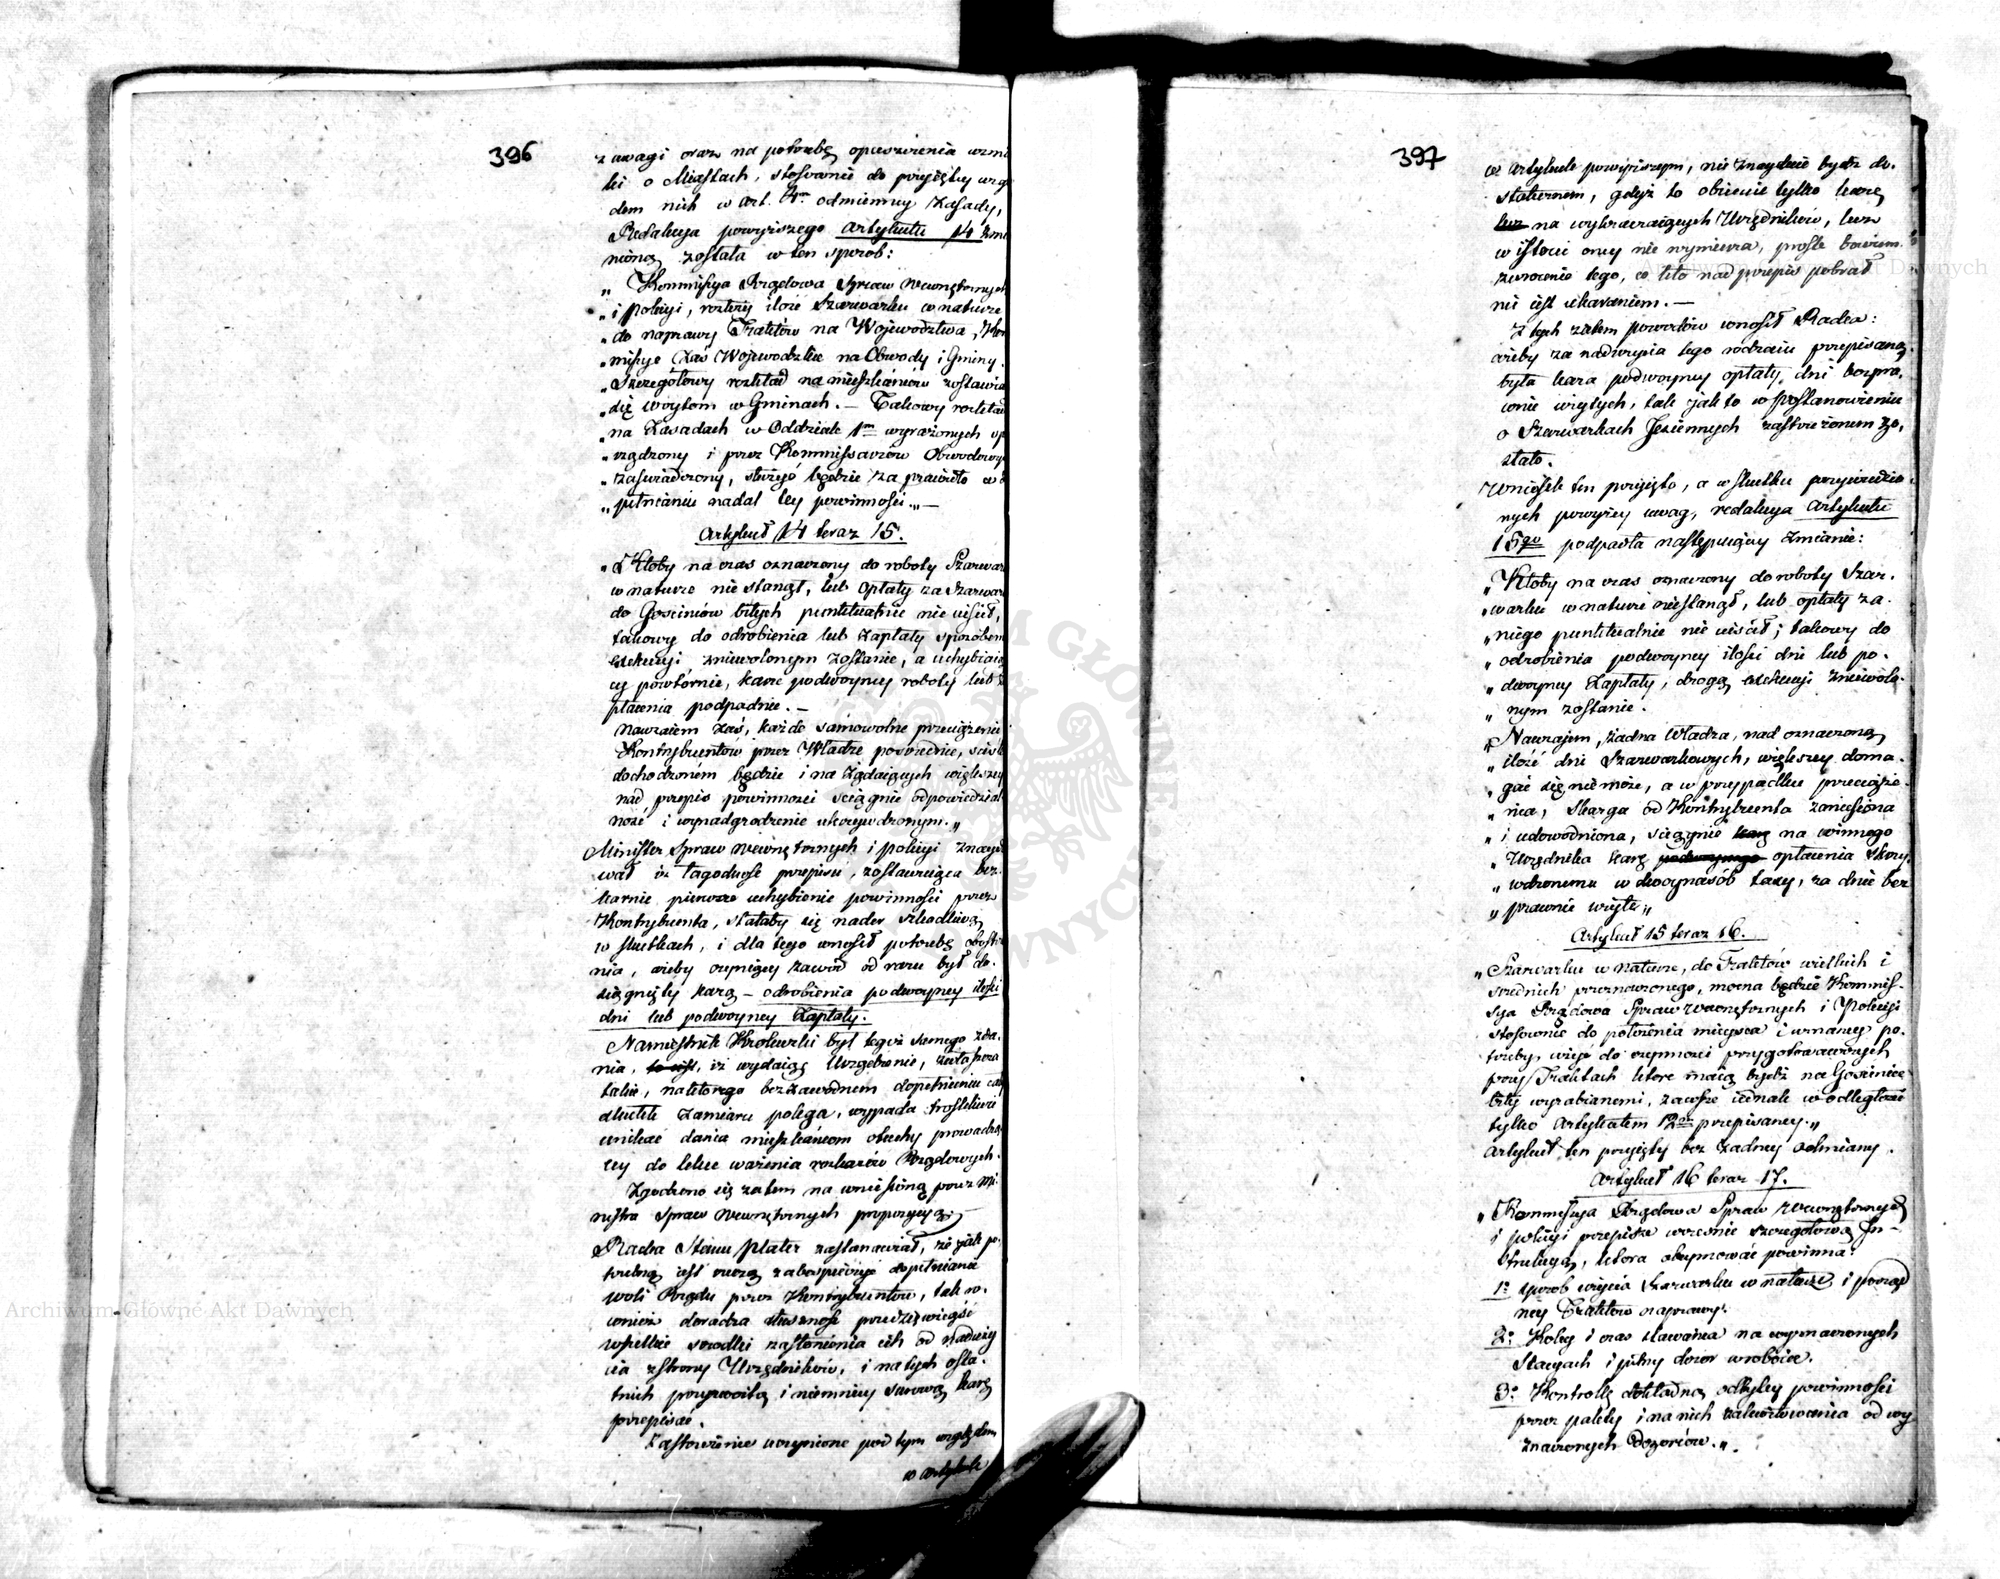 396
z uwagi oraz na potrzebę opuszczenia wzmi
ki o Miastach, stosownie do przyjętey wzgl
dem nich w art. 4m odmienney zasady,
Redakcya powyższego artykułu 14 zmi
nioną została w ten sposób:
„ Kommissya Rządowa Spraw Wewnętrznych
„ i Policyi, rozłoży ilość Szarwarku w naturze
„ do naprawy Traktów na Województwa, Kom
„ missye zaś Wojewodzkie na Obwody i Gminy.
„ Szczegółowy rozkład na mieszkańców zostawia
„ się Woytom w Gminach. — Takowy rozkład
„ na zasadach w Oddziale 1m wyrażonych up
„ rządzony i przez Kommissarzów Obwodowy
„ zaświadczony, służyć będzie za prawidło w d
„ pełnianiu nadal tey powinności. „ —
Artykuł 14 teraz 15.
„ Ktoby na czas oznaczony do roboty Szarwar
w naturze nie stanął, lub opłaty za Szarwar
do Gościńców bitych punktualnie nie uiścił,
takowy do odrobienia lub zapłaty sposobem
exekucyi zniewolonym zostanie, a uchybiaią
cy powtórnie, karze podwoyney roboty lub z
płacenia podpadnie. —
Nawzaiem zaś, każde samowolne przeciążenie
Kontrybuentów przez Władze pośrednie, ściśle
dochodzonem będzie i na żądaiących większey
nad przepis powinności ściągnie odpowiedzial
ność i wynadgrodzenie ukrzywdzonym. „
Minister Spraw Wewnętrznych i Policyi znaydo
wał iż łagodność przepisu, zostawuiąca bez
karnie pierwsze uchybienie powinności przez
Kontrybuenta, stałaby się nader szkodliwą
w skutkach, i dla tego wnosił potrzebę obostrze
nia, ażeby czyniący zawód od razu był do-
sięgnięty karą — odrobienia podwoyney ilości
dni lub podwoyney zapłaty.
Namiestnik Krolewski był tegoż samego zda-
nia, iż wydaiąc Urządzenie, zwłaszcza
takie, na którego bezzawodnem dopełnieniu cały
skutek zamiaru polega, wypada troskliwie
unikać dania mieszkańcom otuchy prowadzą-
cey do lekce ważenia rozkazów Rządowych.
Zgodzono się zatem na wniesioną przez Mi-
nistra Spraw Wewnętrznych propozycyą;
Radca Stanu Plater zastanawiał, że jak po-
trzebną iest rzeczą zabespieczyć dopełnianie
woli Rządu przez Kontrybuentów, tak ró-
wnież doradza słuszność przedsięwziąść
wszelkie środki zasłonienia ich od naduży
cia z strony Urzędników, i na tych osta-
tnich przyzwoitą i niemniey surową karę
przepisać.
Zastrzeżenie uczynione pod tym względem
w artykule
397
w artykule powyższym, nie znayduie bydź do-
statecznem, gdyż to obiecuie tylko karę
na wykraczaiących Urzędników, lecz
w istocie oney nie wymierza, proste bowiem
zwrócenie tego, co kto nad przepis pobrał
nie iest ukaraniem. —
Z tych zatem powodów wnosił Radca:
ażeby za nadużycia tego rodzaiu przepisaną
była kara podwoyney opłaty, dni bezpra-
wnie wziętych, tak jak to w postanowieniu
o Szarwarkach Jesiennych zastrzeżonem zo-
stało.
Wniosek ten przyjęto, a w skutku przywiedzio-
nych powyżey uwag, redakcya artykułu
15go podpadła następuiącey zmianie:
„ Ktoby na czas oznaczony do roboty Szar-
„ warku w naturze niestanął, lub opłaty za
„ niego punktualnie nie uiścił; takowy do
„ odrobienia podwoyney ilości dni lub po-
„ dwoyney zapłaty, drogą exekucyi zniewolo-
„ nym zostanie.
„ Nawzajem, żadna Władza, nad oznaczoną
„ ilość dni Szarwarkowych, większey doma-
„ gać się nie może, a w przypadku przeciąże-
„ nia, skarga od Kontrybuenta zaniesiona
„ i udowodniona, ściągnie na winnego
„ Urzędnika karę opłacenia skrzy-
„ wdzonemu w dwoynasób taxy, za dnie bez
„ prawnie wzięte „
Artykuł 15 teraz 16.
„ Szarwarku w naturze, do Traktów wielkich i
średnich przeznaczonego, mocna będzie Kommis-
sya Rządowa Spraw Wewnętrznych i Policyi
stosownie do położenia mieysca i uznaney po-
trzeby, użyć do czynności przygotowawczych
przy Traktach które maią bydź na Gościńce
bite wyrabianemi, zawsze iednak w odległości
tylko Artykułem 12m przepisaney. „
Artykuł ten przyięty bez żadney odmiany.
Artykuł 16 teraz 17.
„ Kommissya Rządowa Spraw Wewnętrznych
i Policyi przepisze wcześnie szczegółową In-
strukcyą, która obeymować powinna:
1o sposób użycia Szarwarku w naturze i porząd
ney Traktów naprawy.
2o Koley i czas stawania na wyznaczonych
Stacyach i pilny dozór w robocie.
3o Kontrollę dokładną odbytey powinności
przez palety i na nich zakwitowania od wy
znaczonych Dozorców. „.